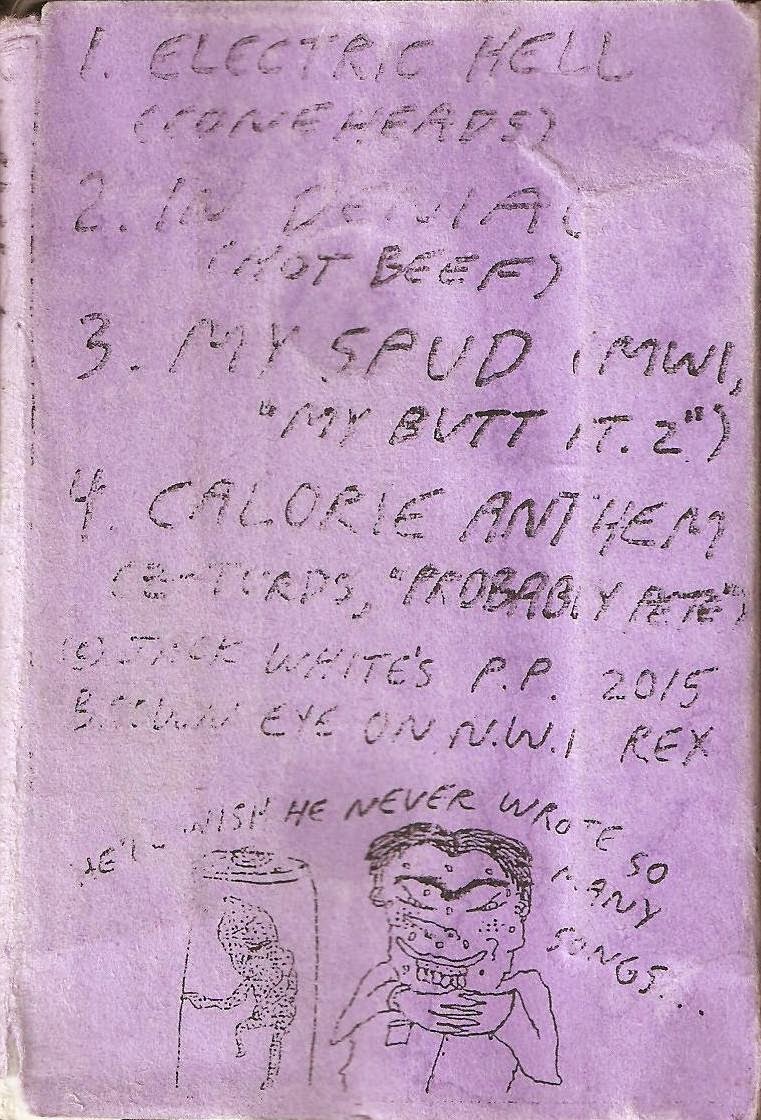 1. ELECTRIC HELL
(CONEHEADS)
2. IN DENIAL
(HOT BEEF)
3. MY SPUD (MWI,
"MY BUTT PT. 2")
4. CALORIE ANTHEM
"PROBABLY PETE")
(C) JACK WHITE'S P.P. 2015
EYE ON N.W.I REX
HE'LL WISH HE NEVER WROTE SO
MANY
SONGS...